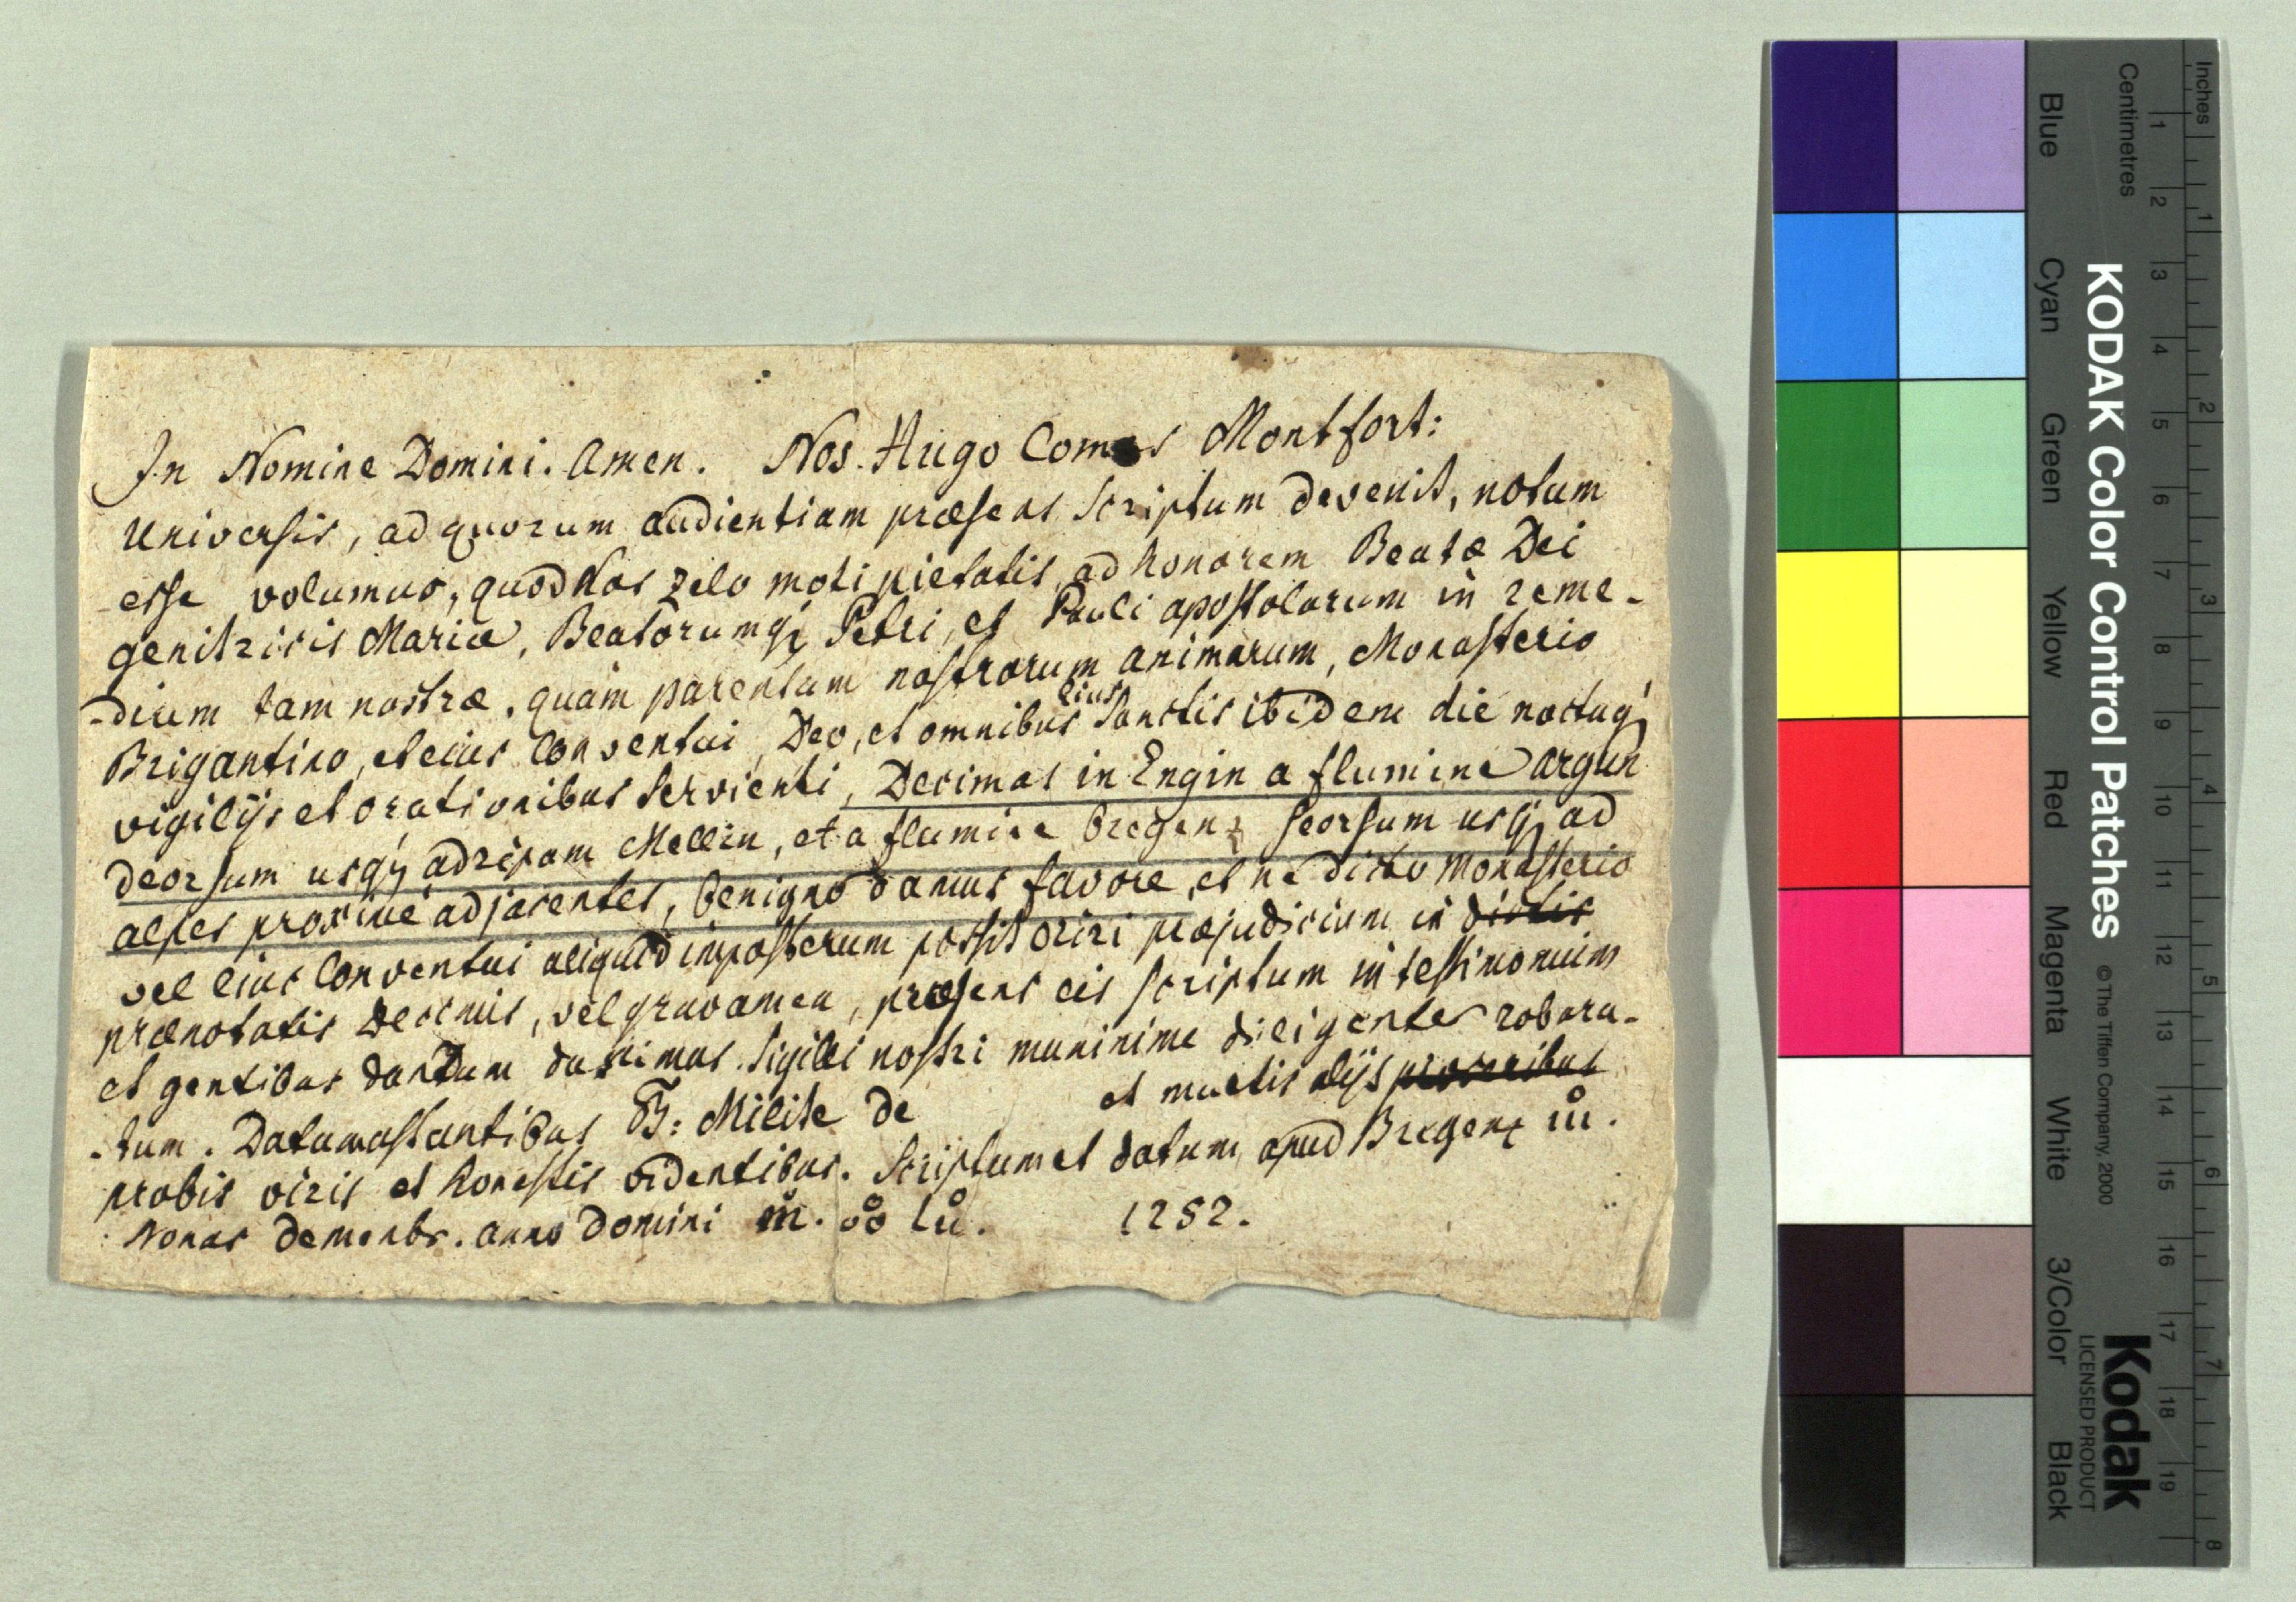 In Nomine Domini. Amen. Nos. Hugo Comes Montfort:
Universis, ad quorum audientiam præsens scriptum devenit, notum
esse volumus, quod Nos zelo moti pietatis, ad honorem Beatæ Dei
genitricis Mariæ, Beatorumq; Petri, et Pauli apostolorum in reme-
-dium tam nostræ, quam parentum nostrorum animarum, Monasterio
Brigantino, et eius Conventui, Deo, et omnibus eius Sanctis ibidem die noctuq;
vigilijs et orationibus servienti, Decimas in Engin a flumine Argun
deorsum usq; ad ripam Mellin, et a flumine Bregenz seorsum usq; ad
alpes proxime adjacentes, benigno damus favore, et ne dicto Monasterio
vel eius Conventui aliquid imposterum possit oriri præjudicium in dictis
prænotatis Decimis, vel gravamen, præsens eis scriptum in testimonium
et gentibus dandum duximus sigilli nostri munimine diligenter robora-
-tum. Datum astantibus B: Milite de et multis alijs
probis viris et honestis videntibus. Scriptum et datum apud Bregenz iii.
Nonas Anno Domini m. cc lii. 1252.
KODAK Color Control Patches © The Tiffen Company, 2000
Kodak
LICENSED PRODUCT
Blue Cyan Green Yellow Red Magenta White 3/Color Black
Centimetres 1 2 3 4 5 6 7 8 9 10 11 12 13 14 15 16 17 18 19
Inches 1 2 3 4 5 6 7 8